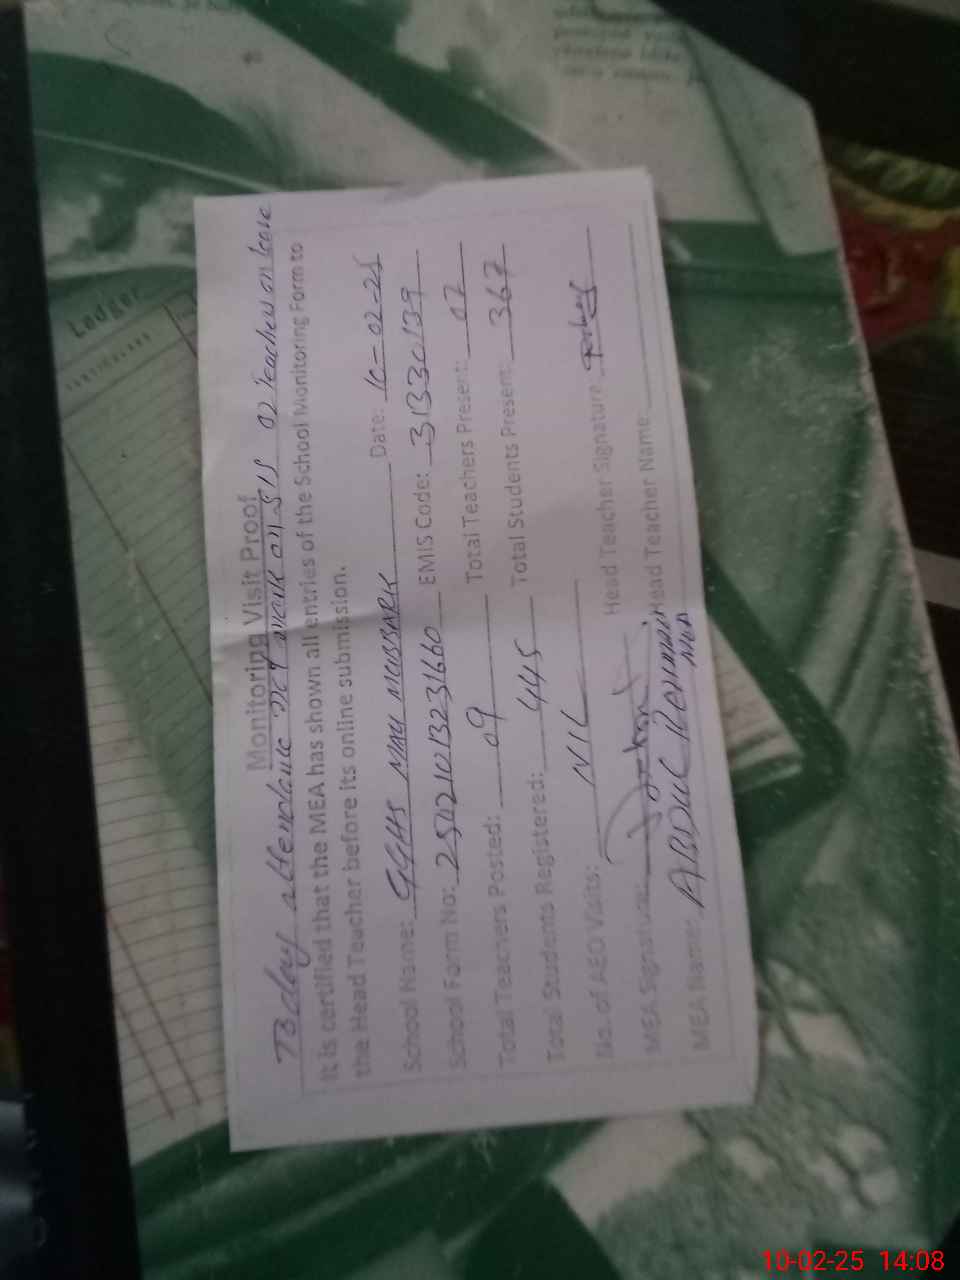 Monitoring Visit Proof
Today attendance not mark on SIS 02 Teachers on leave
It is certified that the MEA has shown all entries of the School Monitoring Form to
the Head Teacher before its online submission.
School Name: GGHS MAU MUBARK Date: 10-02-25
School Form No: 25021013231660 EMIS Code: 31330139
Total Teachers Posted: 09 Total Teachers Present: 07
Total Students Registered: 445 Total Students Present: 367
No. of AEO Visits: NIL
MEA Signature: Head Teacher Signature
MEA Name: ABDUL REHMAN Head Teacher Name:
Ledger
10-02-25 14:08